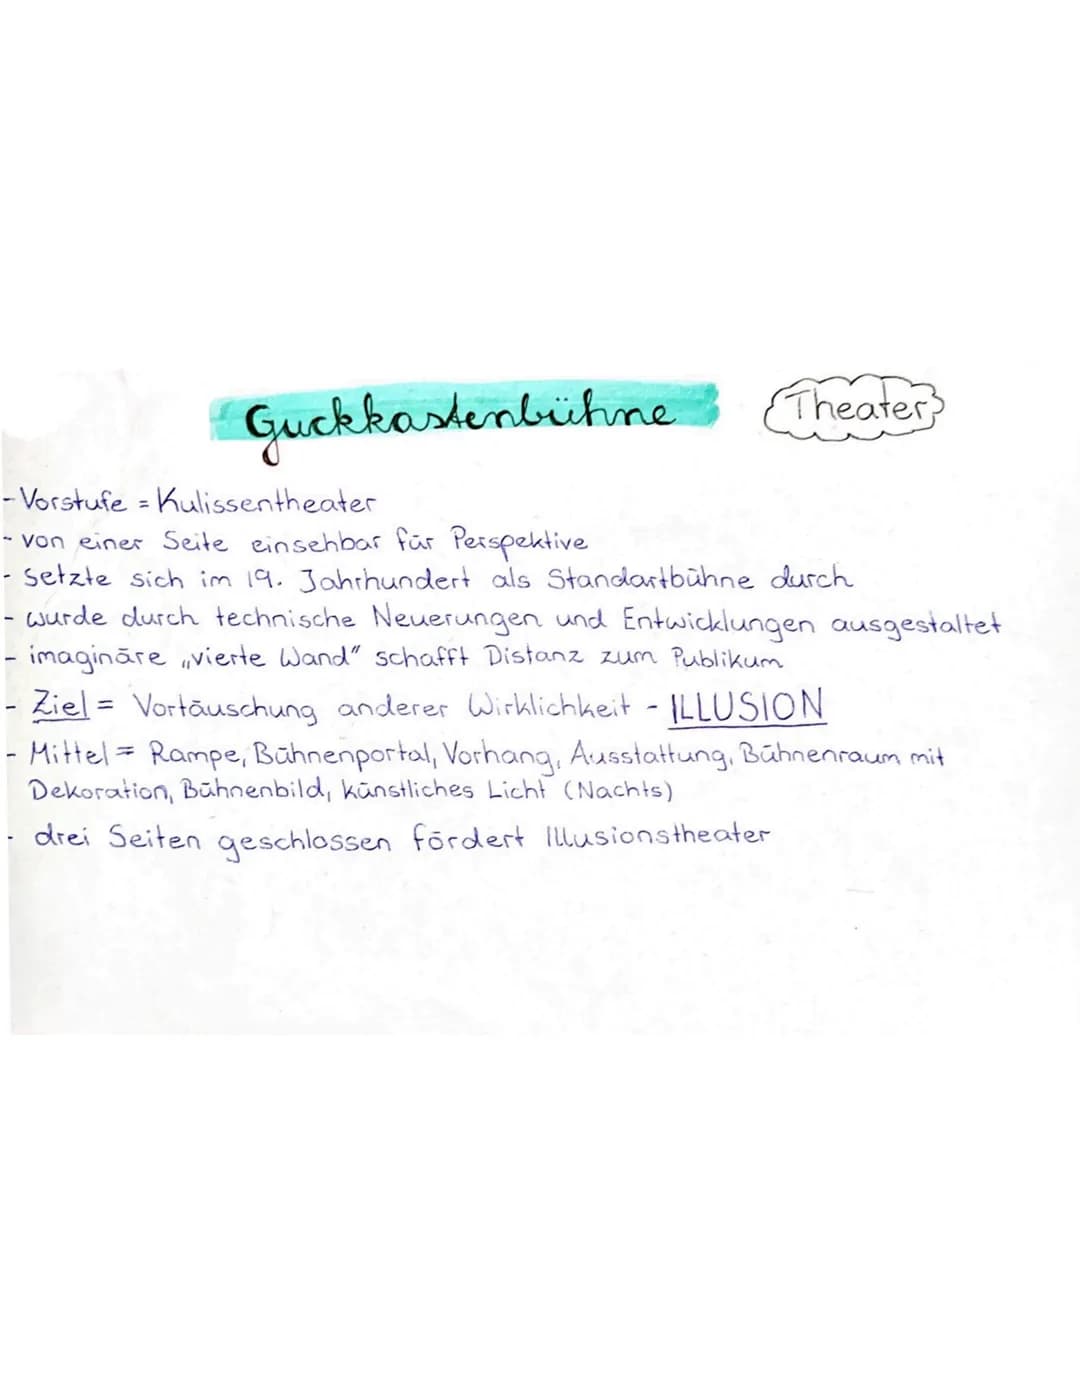 Guckkastenbühne
Theater
- Vorstufe = Kulissentheater
- von einer Seite einsehbar für Perspektive
- setzte sich im 19. Jahrhundert als Standartbühne durch
- wurde durch technische Neuerungen und Entwicklungen ausgestaltet
- imaginäre „vierte Wand" schafft Distanz zum Publikum
- Ziel = Vortäuschung anderer Wirklichkeit - ILLUSION
- Mittel = Rampe, Bühnenportal, Vorhang, Ausstattung, Bühnenraum mit
Dekoration, Bühnenbild, künstliches Licht (Nachts)
- drei Seiten geschlossen fördert Illusionstheater